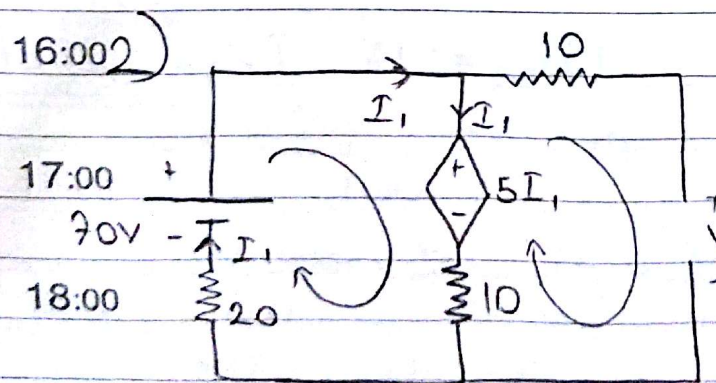 16:00 2)
10
I₁ I₁
17:00 + + 5I₁
70V - I₁ -
18:00 20 10